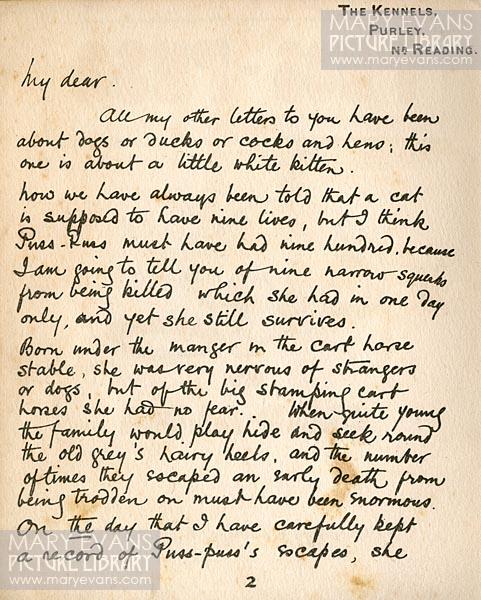 THE KENNELS,
PURLEY,
NR READING.
MARY EVANS
PICTURE LIBRARY
www.maryevans.com
My dear.
All my other letters to you have been
about dogs or ducks or cocks and hens; this
one is about a little white kitten.
now we have always been told that a cat
is supposed to have nine lives, but I think
Puss-Puss must have had nine hundred. because
I am going to tell you of nine narrow squeaks
from being killed which she had in one day
only, and yet she still survives.
Born under the manger in the cart horse
stable, she was very nervous of strangers
or dogs, but of the big stamping cart
horses she had no fear. When quite young
the family would play hide and seek round
the old grey's hairy heels, and the number
of times they escaped an early death from
being trodden on must have been enormous.
On the day that I have carefully kept
a record of Puss-puss's escapes, she
MARY EVANS
PICTURE LIBRARY
www.maryevans.com
MARY EVANS
PICTURE LIBRARY
www.maryevans.com
2